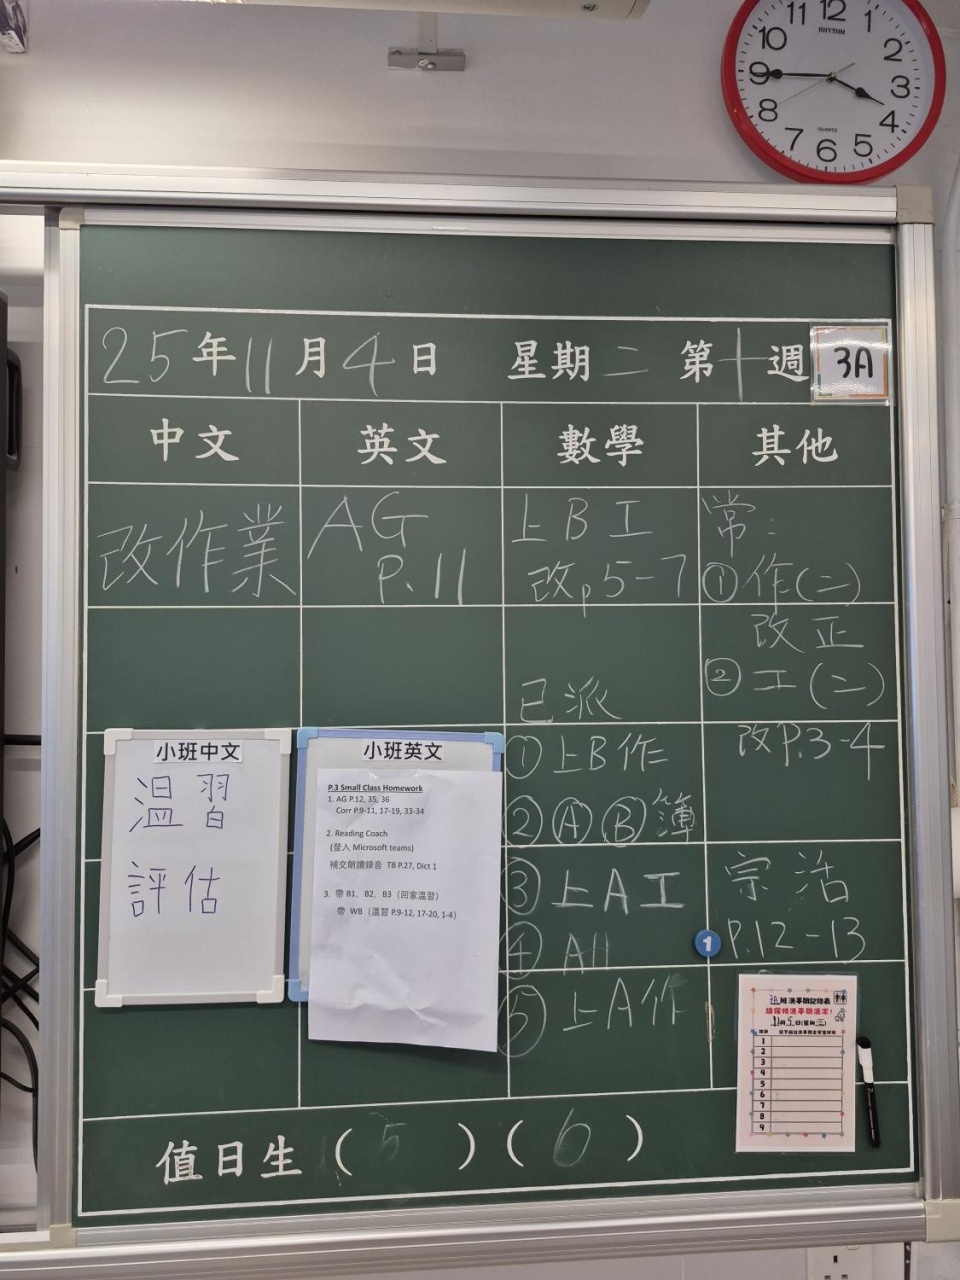 11 12 1 2 3 4 5 6 7 8 9 10
RHYTHM
QUARTZ
25年11月4日 星期二 第十週 3A
中文 英文 數學 其他
改作業
AG
P.11
上B工
改p5-7
已派
①上B作
②ⒶⒷ簿
③上A工
④A11
⑤上A作
常:
①作(二)
改正
②工(二)
改P.3-4
宗活
1 P.12-13
小班中文
溫習
評估
小班英文
P.3 Small Class Homework
1. AG P.12, 35, 36
Corr P.9-11, 17-19, 33-34
2. Reading Coach
(登入 Microsoft teams)
補交朗讀錄音 TB P.27, Dict 1
3. 帶 B1、B2、B3（回家溫習）
帶 WB（溫習 P.9-12, 17-20, 1-4）
3A班洗手間記錄表
請保持洗手間清潔!
11月5日(星期三)
1
2
3
4
5
6
7
8
9
值日生 (5) (6)